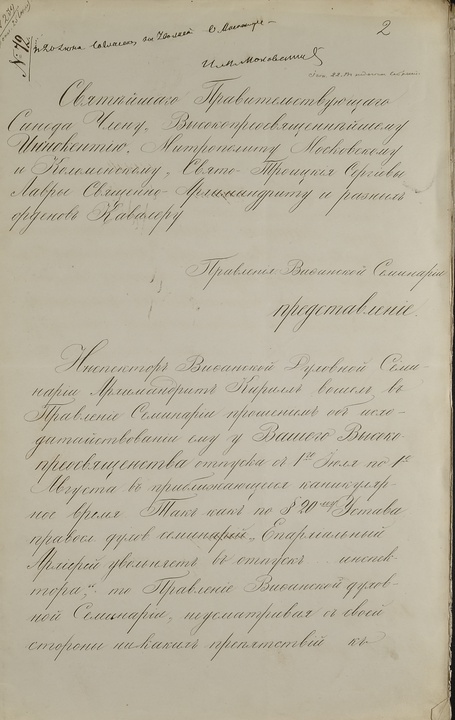 2
№ 12
И. М. Московский
Святѣйшаго Правительствующаго
Синода Члену, Высокопреосвященнѣйшему
Иннокентію, Митрополиту Московскому
и Коломенскому, Свято-Троицкія Сергіевы
Лавры Священно-Архимандриту и разныхъ
орденовъ Кавалеру
Правленія Виѳанской Семинаріи
представленіе.
Инспекторъ Виѳанской Духовной Семи-
наріи Архимандритъ Кириллъ вошелъ въ
Правленіе Семинаріи прошеніемъ объ исхо-
датайствованіи ему у Вашего Высоко-
преосвященства отпуска съ 1го Іюля по 1е
Августа въ приближающееся каникуляр-
ное время. Такъ какъ по § 20 Устава
правосл. духов. семинарій „Епархіальный
Архіерей увольняетъ въ отпускъ инспек-
тора", то Правленіе Виѳанской духов-
ной Семинаріи, неусматривая съ своей
стороны никакихъ препятствій къ